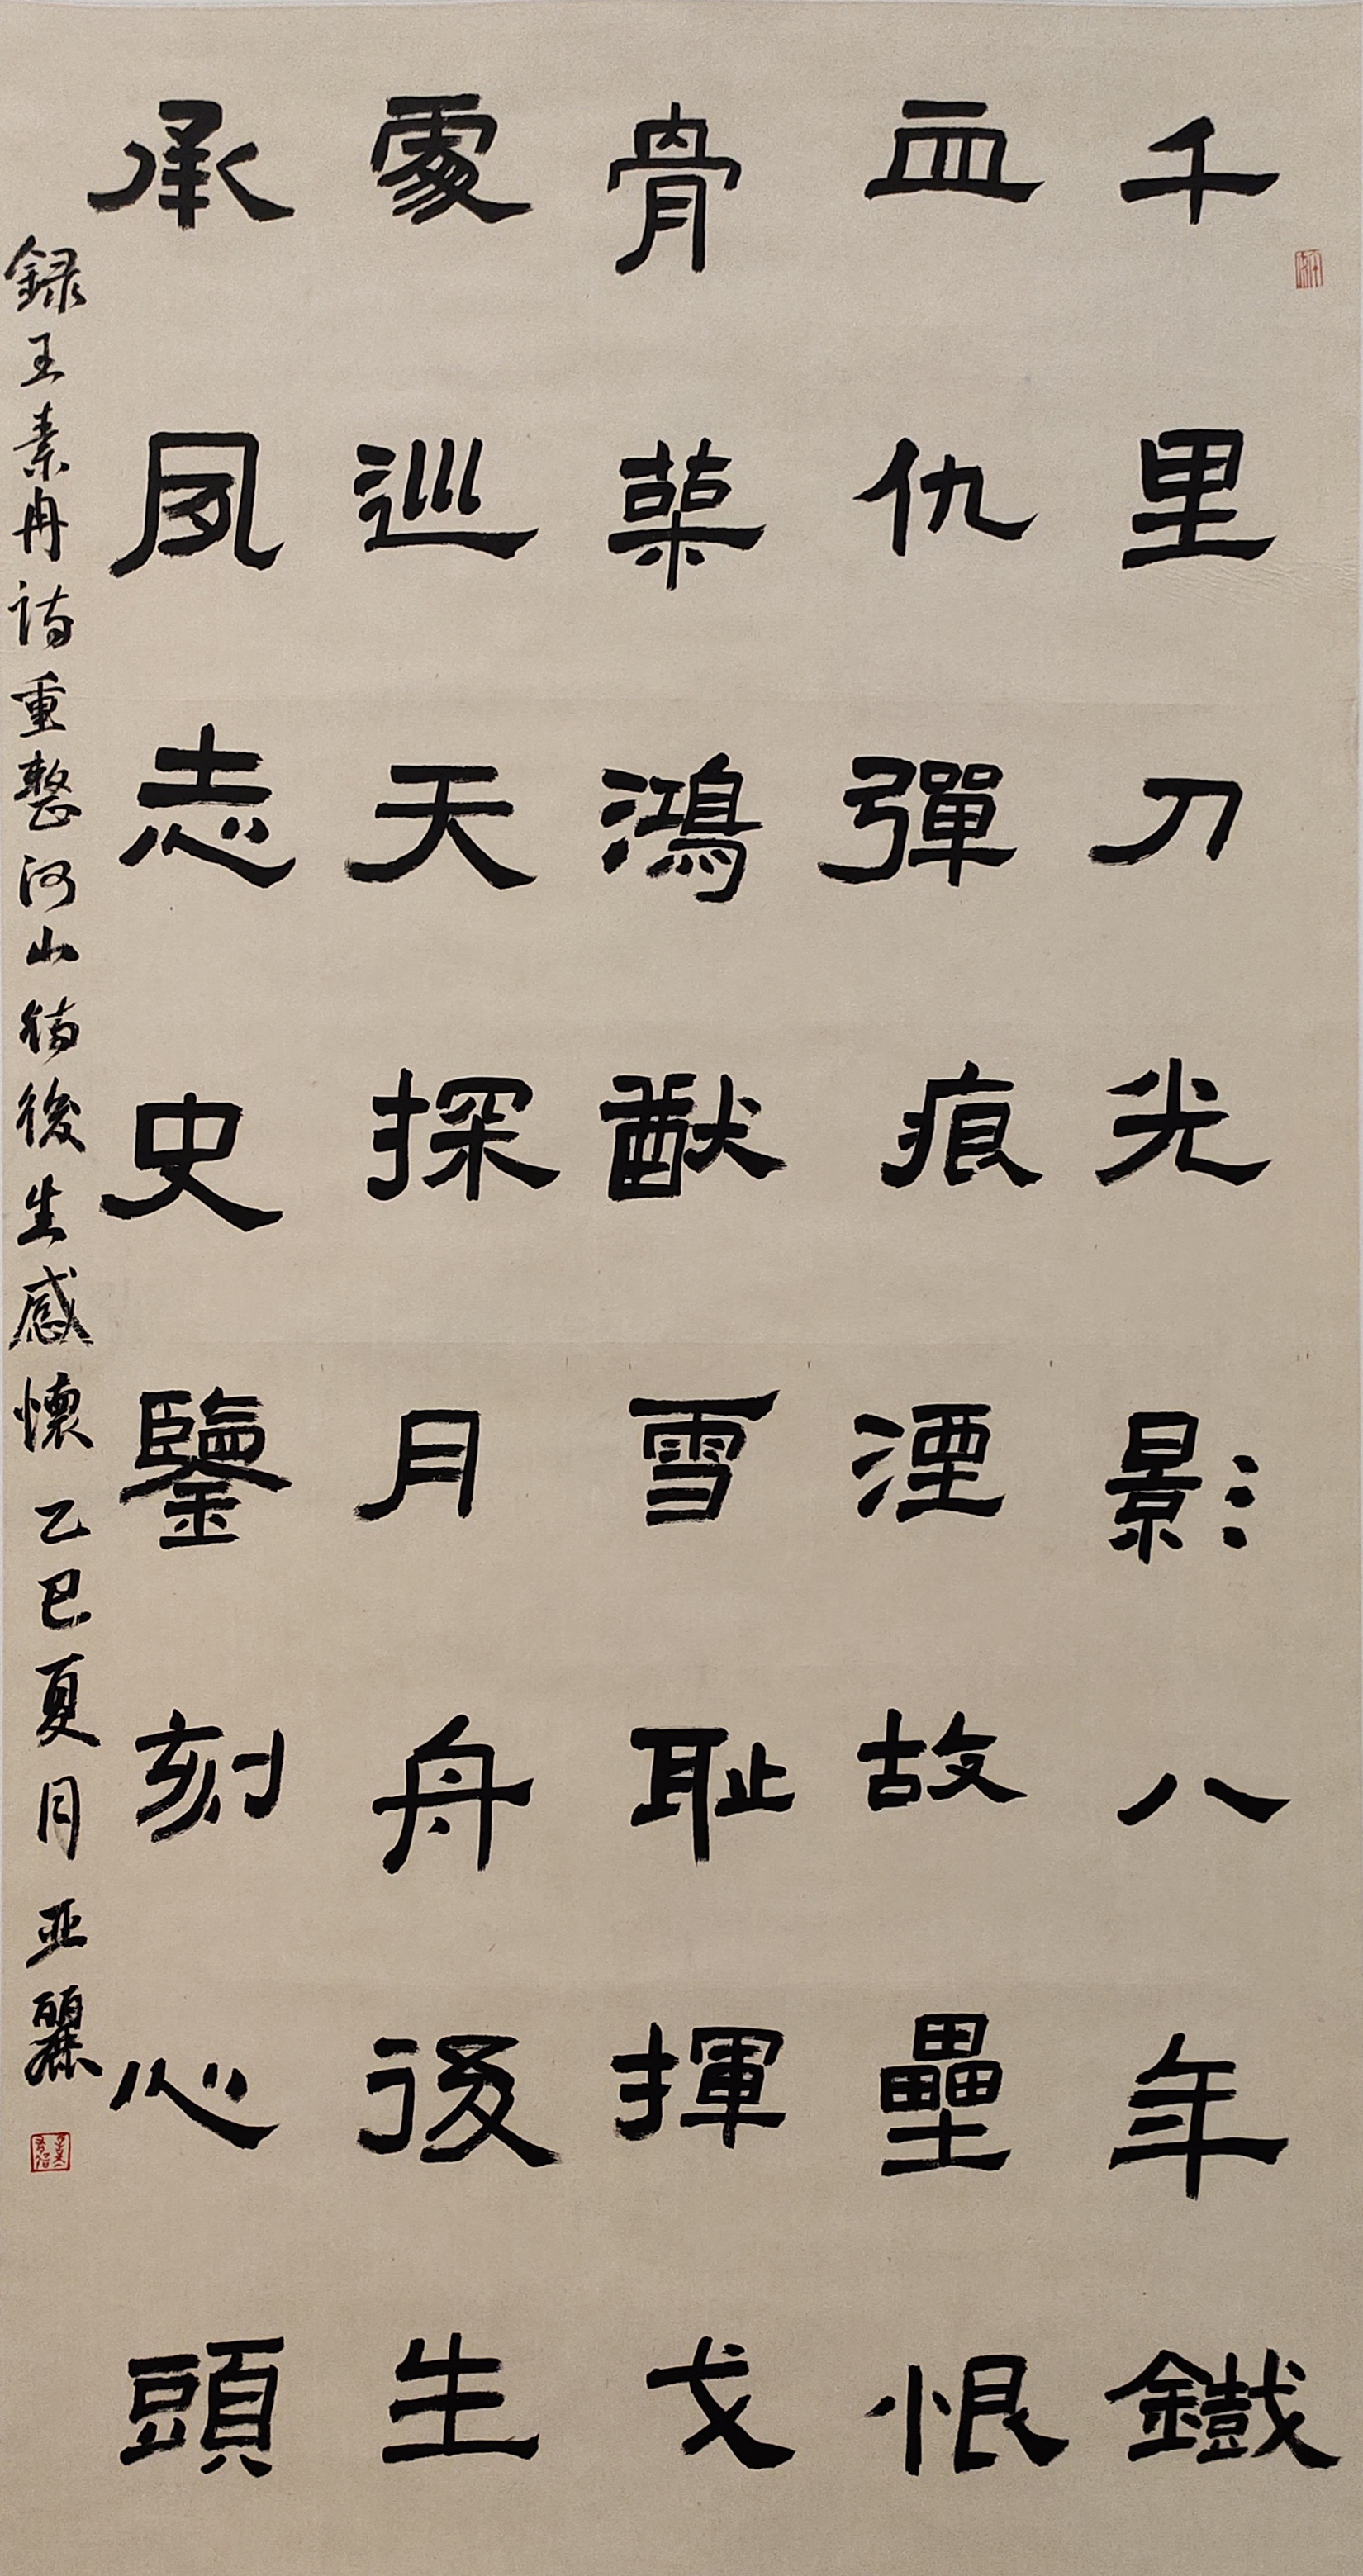 千里刀光影八年鐵
血仇彈痕湮故壘恨
骨築鴻猷雪耻揮戈
處巡天探月舟後生
承夙志史鑒刻心頭
録王素冉詩重整河山待後生感懷乙巳夏月亞麗